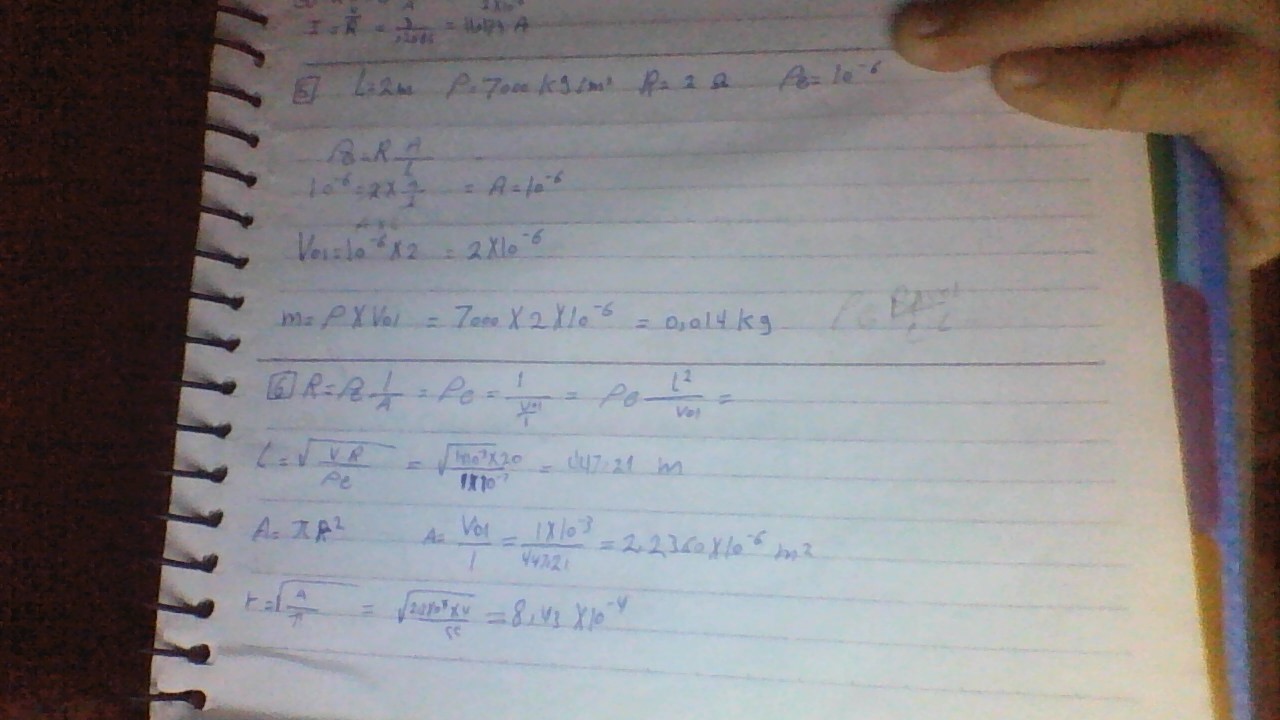 I = V/R = = A
5 L=2m ρ=7000 kg/m³ R= 2 Ω ρe= 10⁻⁶
ρe=R A/L
10⁻⁶=2× A/2 = A=10⁻⁶
Vol=10⁻⁶×2 = 2×10⁻⁶
m= ρ×Vol = 7000×2×10⁻⁶ = 0,014 kg
6 R=ρe l/A = ρe = l/(Vol/l) = ρe l²/Vol =
L=√(VR/ρe) = = 447.21 m
A= πR² A= Vol/l = 1×10⁻³/447.21 = 2.2360×10⁻⁶ m²
r=√(A/π) = = 8,43 ×10⁻⁴